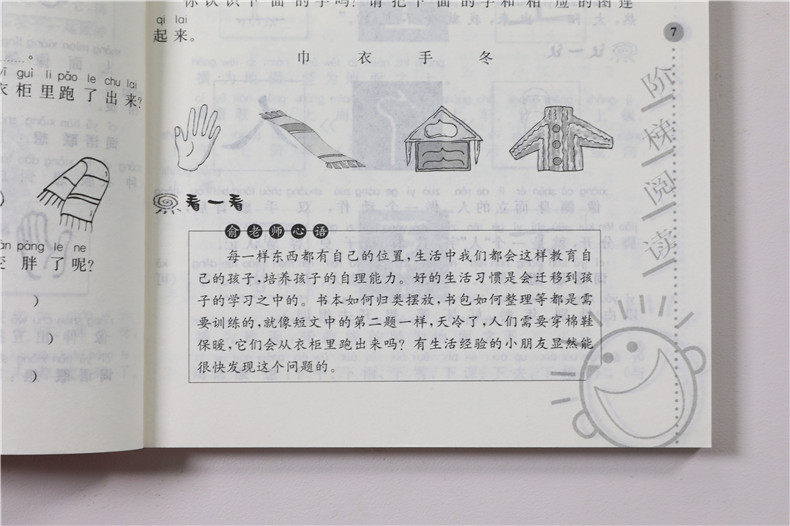 衣柜里跑了出来?
胖了呢?
)
)
)
你认识下面的字吗?请把下面的字和相应的图连
qi lai
起来。
巾 衣 手 冬
看一看
俞老师心语
每一样东西都有自己的位置,生活中我们都会这样教育自
己的孩子,培养孩子的自理能力。好的生活习惯是会迁移到孩
子的学习之中的。书本如何归类摆放,书包如何整理等都是需
要训练的,就像短文中的第二题一样,天冷了,人们需要穿棉鞋
保暖,它们会从衣柜里跑出来吗?有生活经验的小朋友显然能
很快发现这个问题的。
7
阶梯阅读